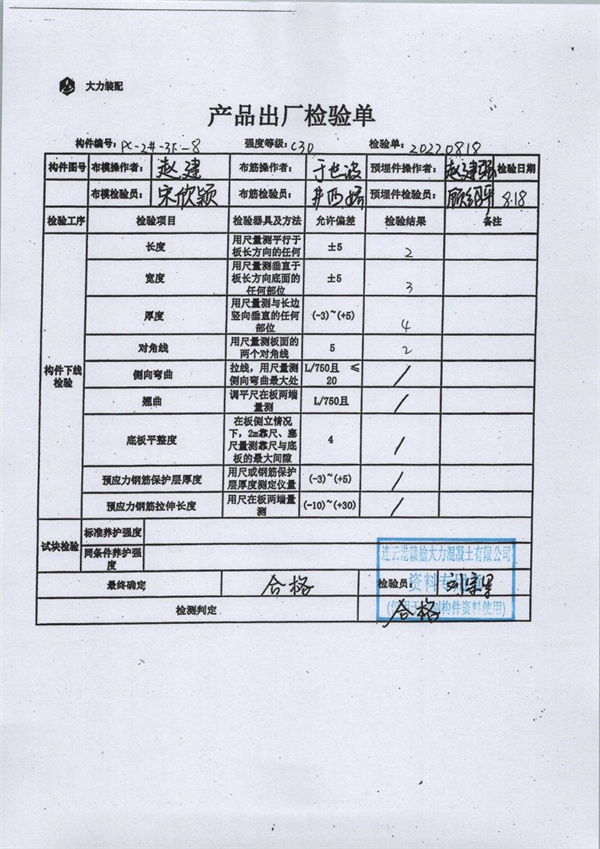 大力装配
产品出厂检验单
构件编号: PC-2#-3F-8 强度等级: C30 检验单: 20220818
构件图号 布模操作者: 赵建 布筋操作者: 于世波 预埋件操作者: 检验日期
布模检验员: 宋欣颖 布筋检验员: 预埋件检验员: 8.18
检验工序 检验项目 检验器具及方法 允许偏差 检验结果 备注
构件下线检验
长度 用尺量测平行于板长方向的任何 ±5 2
宽度 用尺量测垂直于板长方向底面的任何部位 ±5 3
厚度 用尺量测与长边竖向垂直的任何部位 (-3)~(+5) 4
对角线 用尺量测板面的两个对角线 5 2
侧向弯曲 拉线，用尺量测侧向弯曲最大处 L/750且 ≤20 /
翘曲 调平尺在板两端量测 L/750且 /
底板平整度 在板侧立情况下，2m靠尺、塞尺量测靠尺与底板的最大间隙 4 /
预应力钢筋保护层厚度 用尺或钢筋保护层厚度测定仪量 (-3)~(+5) /
预应力钢筋拉伸长度 用尺在板两端量测 (-10)~(+30) /
试块检验 标准养护强度
同条件养护强度
连云港赣榆大力混凝土有限公司
最终确定 合格 检验员:
资料专用章
检测判定 合格
构件资料使用)